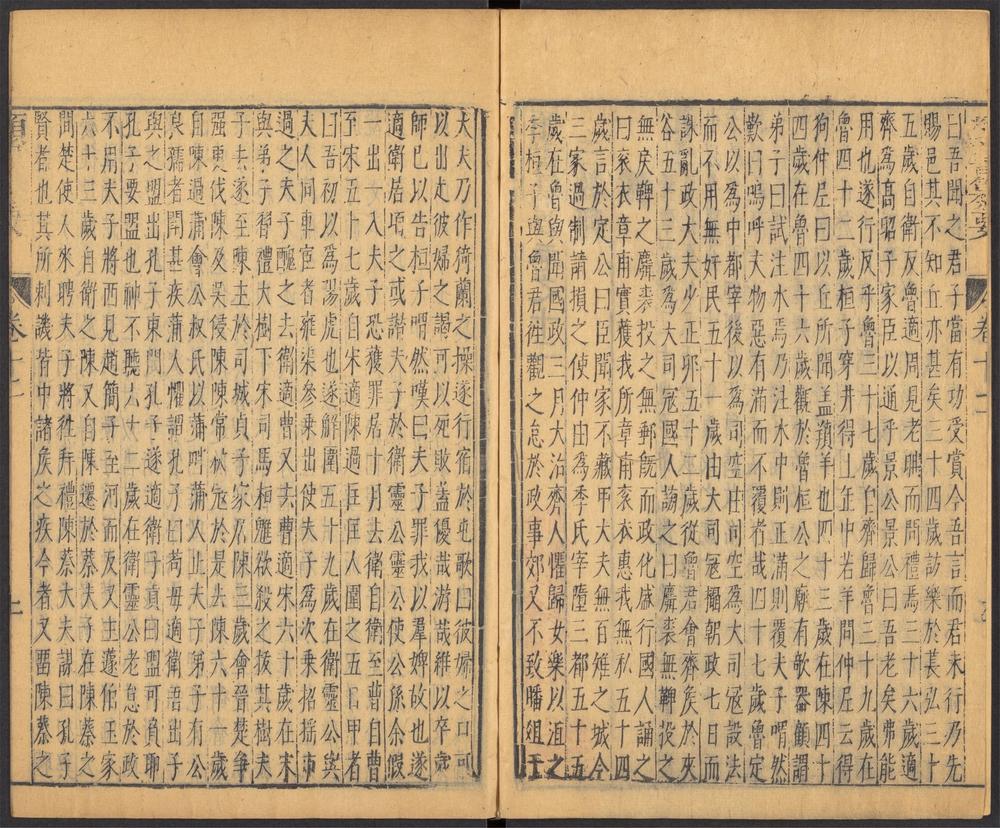 曰吾聞之君子當有功受賞今吾言而君未行乃先
賜邑其不知丘亦甚矣三十四歲訪樂於萇弘三十
五歲自衛反魯適周見老聃而問禮焉三十六歲適
齊為高昭子家臣以通乎景公景公曰吾老矣弗能
用也遂行反乎魯三十七歲自齊歸魯三十九歲在
魯四十二歲桓子穿井得土缶中若羊問仲尼云得
狗仲尼曰以丘所聞盖羵羊也四十三歲在陳四十
四歲在魯四十六歲觀於魯桓公之廟有欹器顧謂
弟子曰試注水焉乃注水中則正滿則覆夫子喟然
歎曰嗚呼夫物惡有滿而不覆者哉四十七歲魯定
公以為中都宰後以為司空由司空為大司寇設法
而不用無奸民五十一歲由大司寇攝朝政七日而
誅亂政大夫少正卯五十二歲從魯君會齊矦於夾
谷五十三歲為大司寇國人謗之曰麛裘而鞞投之
無戾鞞之麛裘投之無郵旣而政化盛行國人誦之
曰衮衣章甫實獲我所章甫衮衣惠我無私五十四
歲言於定公曰臣聞家不藏甲大夫無百雉之城今
三家過制請損之使仲由為季氏宰墮三都五十五
歲在魯與聞國政三月大治齊人懼歸女樂以沮之
季桓子與魯君徃觀之怠於政事郊又不致膰俎于
大夫乃作猗蘭之操遂行宿於屯歌曰彼婦之口可
以出走彼婦之謁可以死敗盖優哉游哉維以卒歲
師已以告桓子喟然嘆曰夫子罪我以羣婢故也遂
適衛居頃之或譖夫子於衛靈公靈公使公孫余假
一出一入夫子恐獲罪居十月去衛自衛至曹自曹
至宋五十七歲自宋適陳過匡匡人圍之五日甲者
曰吾初以為陽虎也遂解圍五十九歲在衛靈公與
夫人同車宦者雍渠參乘出使夫子為次乘招搖市
過之夫子醜之去衛適曹又去曹適宋六十歲在宋
與弟子習禮大樹下宋司馬桓魋欲殺之拔其樹夫
子去遂至陳主於司城貞子家居陳三歲會晉楚爭
強更伐陳及吳侵陳陳常被寇於是去陳六十一歲
自陳過蒲會公叔氏以蒲畔蒲人止夫子弟子有公
良孺者鬬甚疾蒲人懼謂孔子曰苟毋適衛吾出子
與之盟出孔子東門孔子遂適衛子貢曰盟可負耶
孔子曰要盟也神不聽六十二歲在衛靈公老怠於政
不用夫子將西見趙簡子至河而反又主蘧伯玉家
六十三歲自衛之陳又自陳遷於蔡夫子在陳蔡之
間楚使人來聘夫子將徃拜禮陳蔡大夫謀曰孔子
賢者也其所刺譏皆中諸矦之疾今者又畱陳蔡之
卷十一